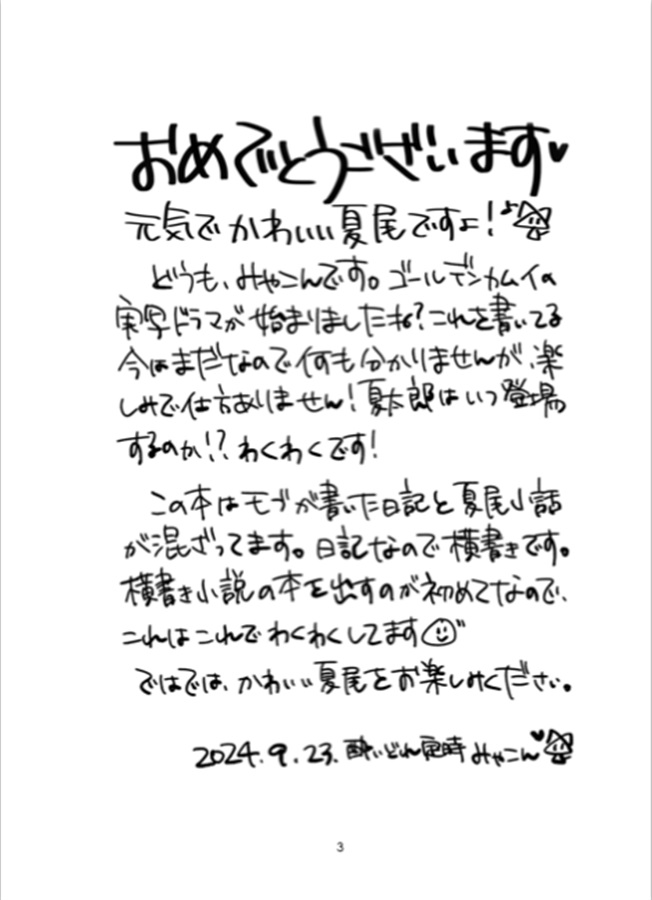 おめでとうございます♥
元気でかわいい夏尾ですよ!♪
どうも、みやこんです。ゴールデンカムイの
実写ドラマが始まりましたね?これを書いてる
今はまだなので何も分かりませんが、楽
しみで仕方ありません!夏太郎はいつ登場
するのか!?わくわくです!
この本はモブが書いた日記と夏尾小話
が混ざってます。日記なので横書きです。
横書き小説の本を出すのが初めてなので、
これはこれでわくわくしてます
ではでは、かわいい夏尾をお楽しみください。
2024.9.23.酔いどれ定時 みやこん♥
3